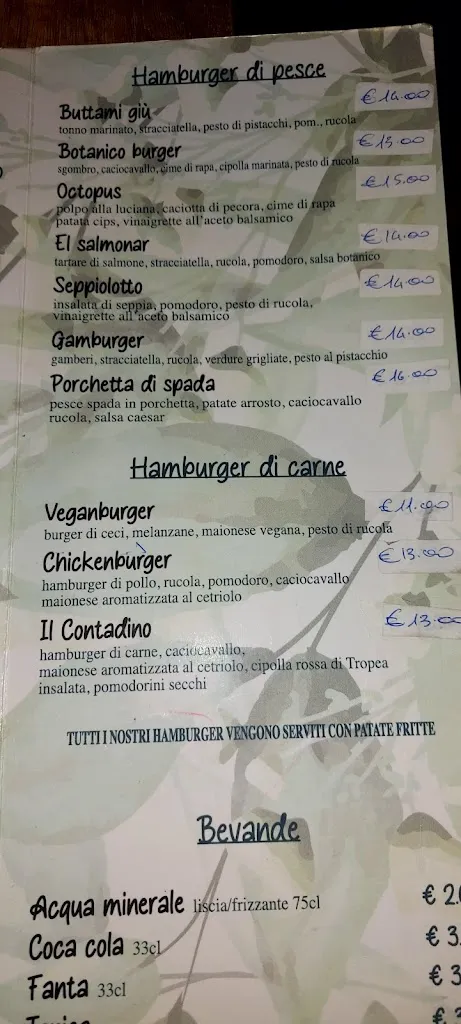 Hamburger di pesce
Buttami giù €14.00
tonno marinato, stracciatella, pesto di pistacchi, pom., rucola
Botanico burger €13.00
sgombro, caciocavallo, cime di rapa, cipolla marinata, pesto di rucola
Octopus €15.00
polpo alla luciana, caciotta di pecora, cime di rapa
patata cips, vinaigrette all'aceto balsamico
El salmonar €14.00
tartare di salmone, stracciatella, rucola, pomodoro, salsa botanico
Seppiolotto €14.00
insalata di seppia, pomodoro, pesto di rucola,
vinaigrette all'aceto balsamico
Gamburger €14.00
gamberi, stracciatella, rucola, verdure grigliate, pesto al pistacchio
Porchetta di spada €16.00
pesce spada in porchetta, patate arrosto, caciocavallo
rucola, salsa caesar
Hamburger di carne
Veganburger €11.00
burger di ceci, melanzane, maionese vegana, pesto di rucola
Chickenburger €13.00
hamburger di pollo, rucola, pomodoro, caciocavallo
maionese aromatizzata al cetriolo
Il Contadino €13.00
hamburger di carne, caciocavallo,
maionese aromatizzata al cetriolo, cipolla rossa di Tropea
insalata, pomodorini secchi
TUTTI I NOSTRI HAMBURGER VENGONO SERVITI CON PATATE FRITTE
Bevande
Acqua minerale liscia/frizzante 75cl € 2.
Coca cola 33cl € 3.
Fanta 33cl € 3